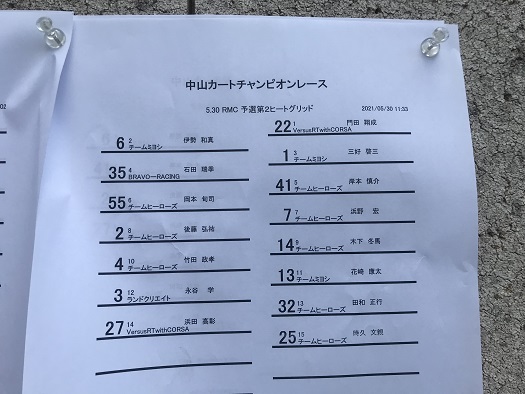 中山カートチャンピオンレース
5.30 RMC 予選第2ヒートグリッド 2021/05/30 11:33
22 1 門田 翔成
VersusRTwithCORSA
6 2 伊勢 和真
チームミヨシ
1 3 三好 啓三
チームミヨシ
35 4 石田 瑞幸
BRAVOーRACING
41 5 岸本 慎介
チームヒーローズ
55 6 岡本 旬司
チームヒーローズ
7 7 浜野 宏
チームヒーローズ
2 8 後藤 弘祐
チームヒーローズ
14 9 木下 冬馬
チームヒーローズ
4 10 竹田 政孝
チームヒーローズ
13 11 花崎 康太
チームミヨシ
3 12 永谷 学
ランドクリエイト
32 13 田和 正行
チームヒーローズ
27 14 浜田 高彰
VersusRTwithCORSA
25 15 時久 文親
チームヒーローズ
02